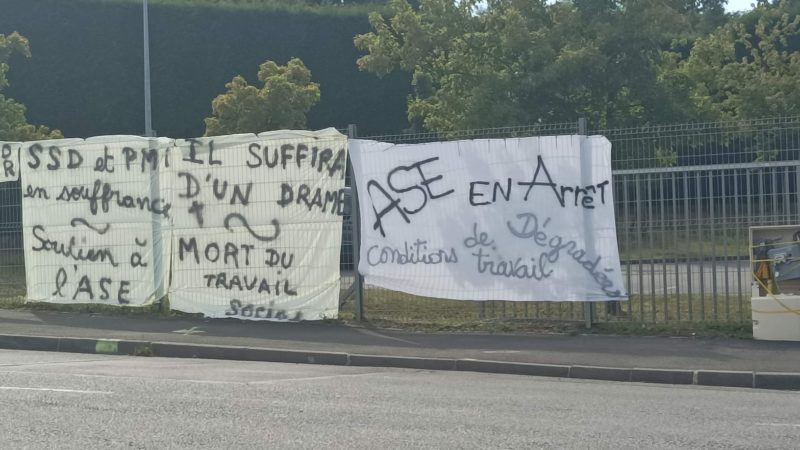 SSD et PMI
en souffrance
~
Soutien à
l'ASE
IL SUFFIRA
D'UN DRAME
MORT DU
TRAVAIL
Social
ASE EN ArrêT
Conditions de travail
Dégradées